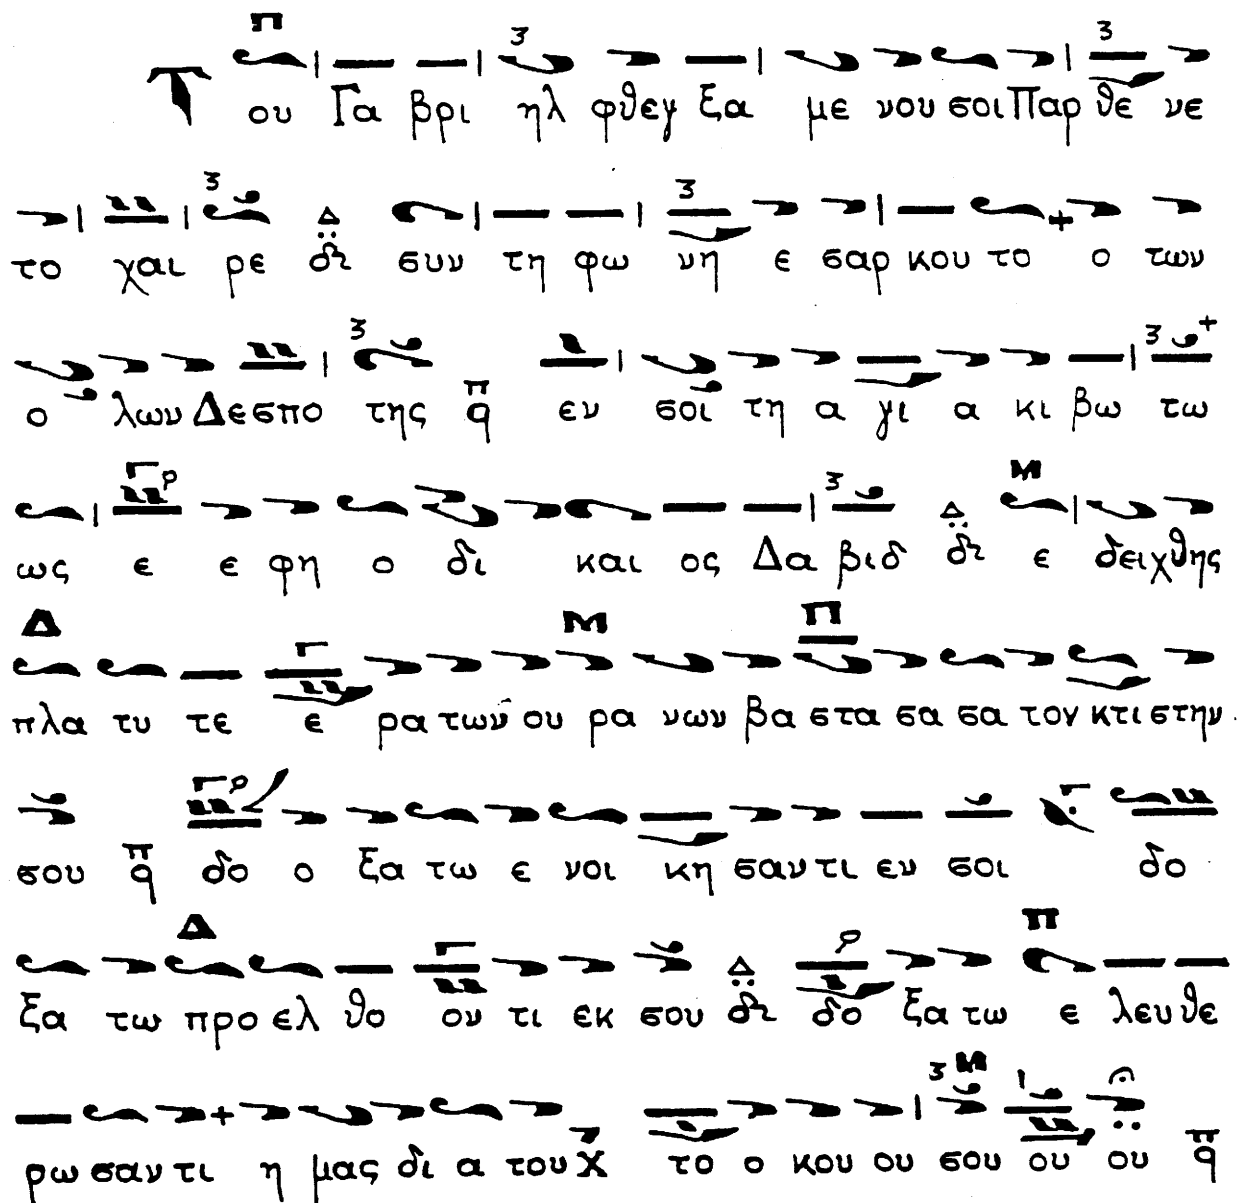 Του Γα βρι ηλ φθεγ ξα με νου σοι Παρ θε νε
το χαι ρε συν τη φω νη ε σαρ κου το ο των
ο λων Δε σπο της εν σοι τη α γι α κι βω τω
ως ε ε φη ο δι και ος Δα βιδ ε δειχ θης
πλα τυ τε ε ρα των ου ρα νων βα στα σα σα τον κτι στην
σου δο ο ξα τω ε νοι κη σαν τι εν σοι δο
ξα τω προ ελ θο ον τι εκ σου δο ξα τω ε λευ θε
ρω σαν τι η μας δι α του το ο κου ου σου ου ου